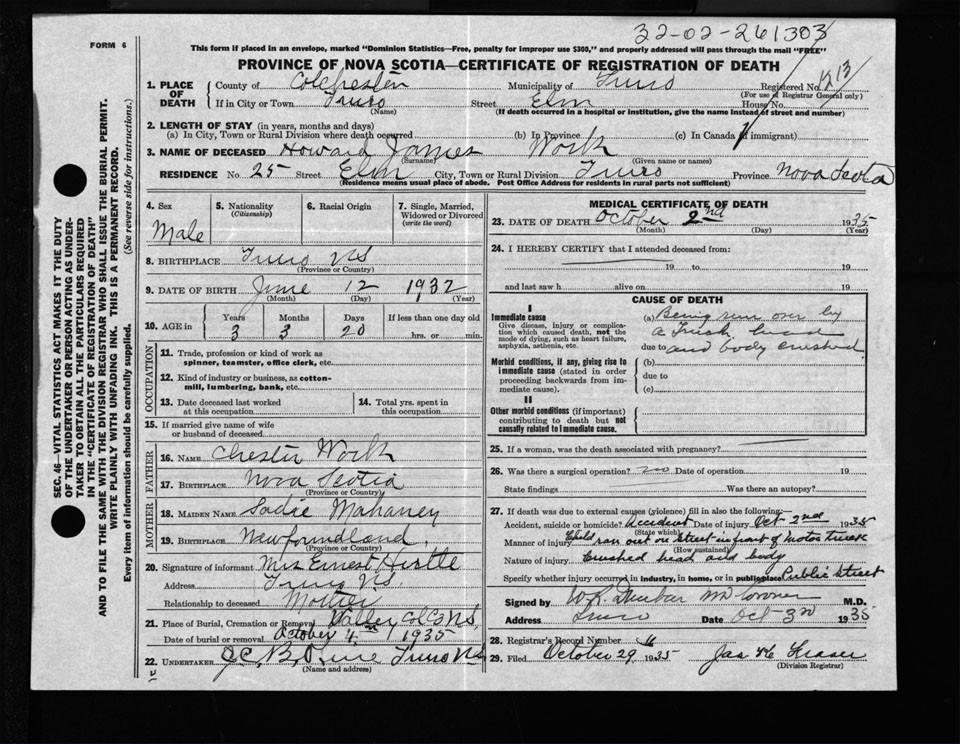 32-02-261303
FORM 6
This form if placed in an envelope, marked "Dominion Statistics—Free, penalty for improper use $300," and properly addressed will pass through the mail "FREE"
PROVINCE OF NOVA SCOTIA—CERTIFICATE OF REGISTRATION OF DEATH
SEC. 46—VITAL STATISTICS ACT MAKES IT THE DUTY
OF THE UNDERTAKER OR PERSON ACTING AS UNDER-
TAKER TO OBTAIN ALL THE PARTICULARS REQUIRED
IN THE "CERTIFICATE OF REGISTRATION OF DEATH"
AND TO FILE THE SAME WITH THE DIVISION REGISTRAR WHO SHALL ISSUE THE BURIAL PERMIT.
WRITE PLAINLY WITH UNFADING INK. THIS IS A PERMANENT RECORD.
Every item of information should be carefully supplied. (See reverse side for instructions.)
1. PLACE OF DEATH County of Colchester Municipality of Truro Registered No.
(For use of Registrar General only)
If in City or Town Truro Street Elm House No.
(Name) (If death occurred in a hospital or institution, give the name instead of street and number)
2. LENGTH OF STAY (in years, months and days)
(a) In City, Town or Rural Division where death occurred (b) In Province (c) In Canada (if immigrant)
3. NAME OF DECEASED Howard James Work
(Surname) (Given name or names)
RESIDENCE No. 25 Street Elm City, Town or Rural Division Truro Province Nova Scotia
(Residence means usual place of abode. Post Office Address for residents in rural parts not sufficient)
4. Sex 5. Nationality (Citizenship) 6. Racial Origin 7. Single, Married, Widowed or Divorced (write the word)
Male
8. BIRTHPLACE Truro NS
(Province or Country)
9. DATE OF BIRTH June 12 1932
(Month) (Day) (Year)
10. AGE in Years Months Days If less than one day old
3 3 20 hrs. or min.
OCCUPATION
11. Trade, profession or kind of work as spinner, teamster, office clerk, etc.
12. Kind of industry or business, as cotton-mill, lumbering, bank, etc.
13. Date deceased last worked at this occupation 14. Total yrs. spent in this occupation
15. If married give name of wife or husband of deceased
FATHER
16. NAME Chester Work
17. BIRTHPLACE Nova Scotia
(Province or Country)
MOTHER
18. MAIDEN NAME Sadie Mahaney
19. BIRTHPLACE Newfoundland
(Province or Country)
20. Signature of informant Mrs Ernest
Address Truro NS
Relationship to deceased Mother
21. Place of Burial, Cremation or Removal Valley Col Co NS
Date of burial or removal October 4th 1935
22. UNDERTAKER Truro NS
(Name and address)
MEDICAL CERTIFICATE OF DEATH
23. DATE OF DEATH October 2nd 1935
(Month) (Day) (Year)
24. I HEREBY CERTIFY that I attended deceased from:
19 to 19
and last saw h alive on 19
CAUSE OF DEATH
I
Immediate cause
Give disease, injury or complication which caused death, not the mode of dying, such as heart failure, asphyxia, asthenia, etc.
(a) Being run over by
a Truck head
due to and body crushed
Morbid conditions, if any, giving rise to immediate cause (stated in order proceeding backwards from immediate cause).
(b)
due to
(c)
II
Other morbid conditions (if important) contributing to death but not causally related to immediate cause.
25. If a woman, was the death associated with pregnancy?
26. Was there a surgical operation? no Date of operation 19
State findings Was there an autopsy?
27. If death was due to external causes (violence) fill in also the following:
Accident, suicide or homicide? Accident Date of injury Oct 2nd 1935
(State which)
Manner of injury Child ran out on street in front of motor truck
(How sustained)
Nature of injury Crushed head and body
Specify whether injury occurred in industry, in home, or in public place Public Street
Signed by W.R. Dunbar MD Coroner M.D.
Address Truro Date Oct 3rd 1935
28. Registrar's Record Number
29. Filed October 29 1935 Jas
(Division Registrar)